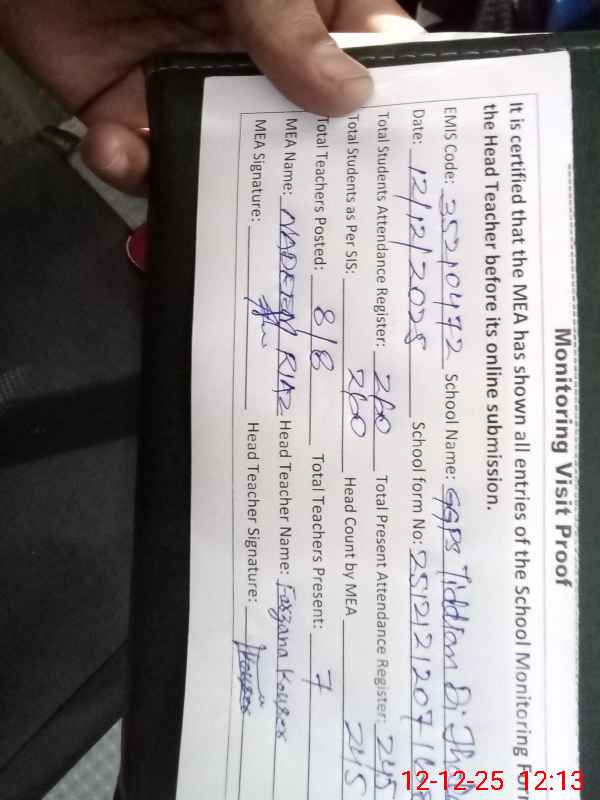 Monitoring Visit Proof
It is certified that the MEA has shown all entries of the School Monitoring Form
the Head Teacher before its online submission.
EMIS Code: 35210472 School Name: GGPS Tiddian Di Jhu
Date: 12/12/2025 School form No: 251212107
Total Students Attendance Register: 260 Total Present Attendance Register: 245
Total Students as Per SIS: 260 Head Count by MEA 245
Total Teachers Posted: 8/8 Total Teachers Present: 7
MEA Name: NADEEM RIAZ Head Teacher Name: Farzana Kousar
MEA Signature: Head Teacher Signature: Kousar
12-12-25 12:13